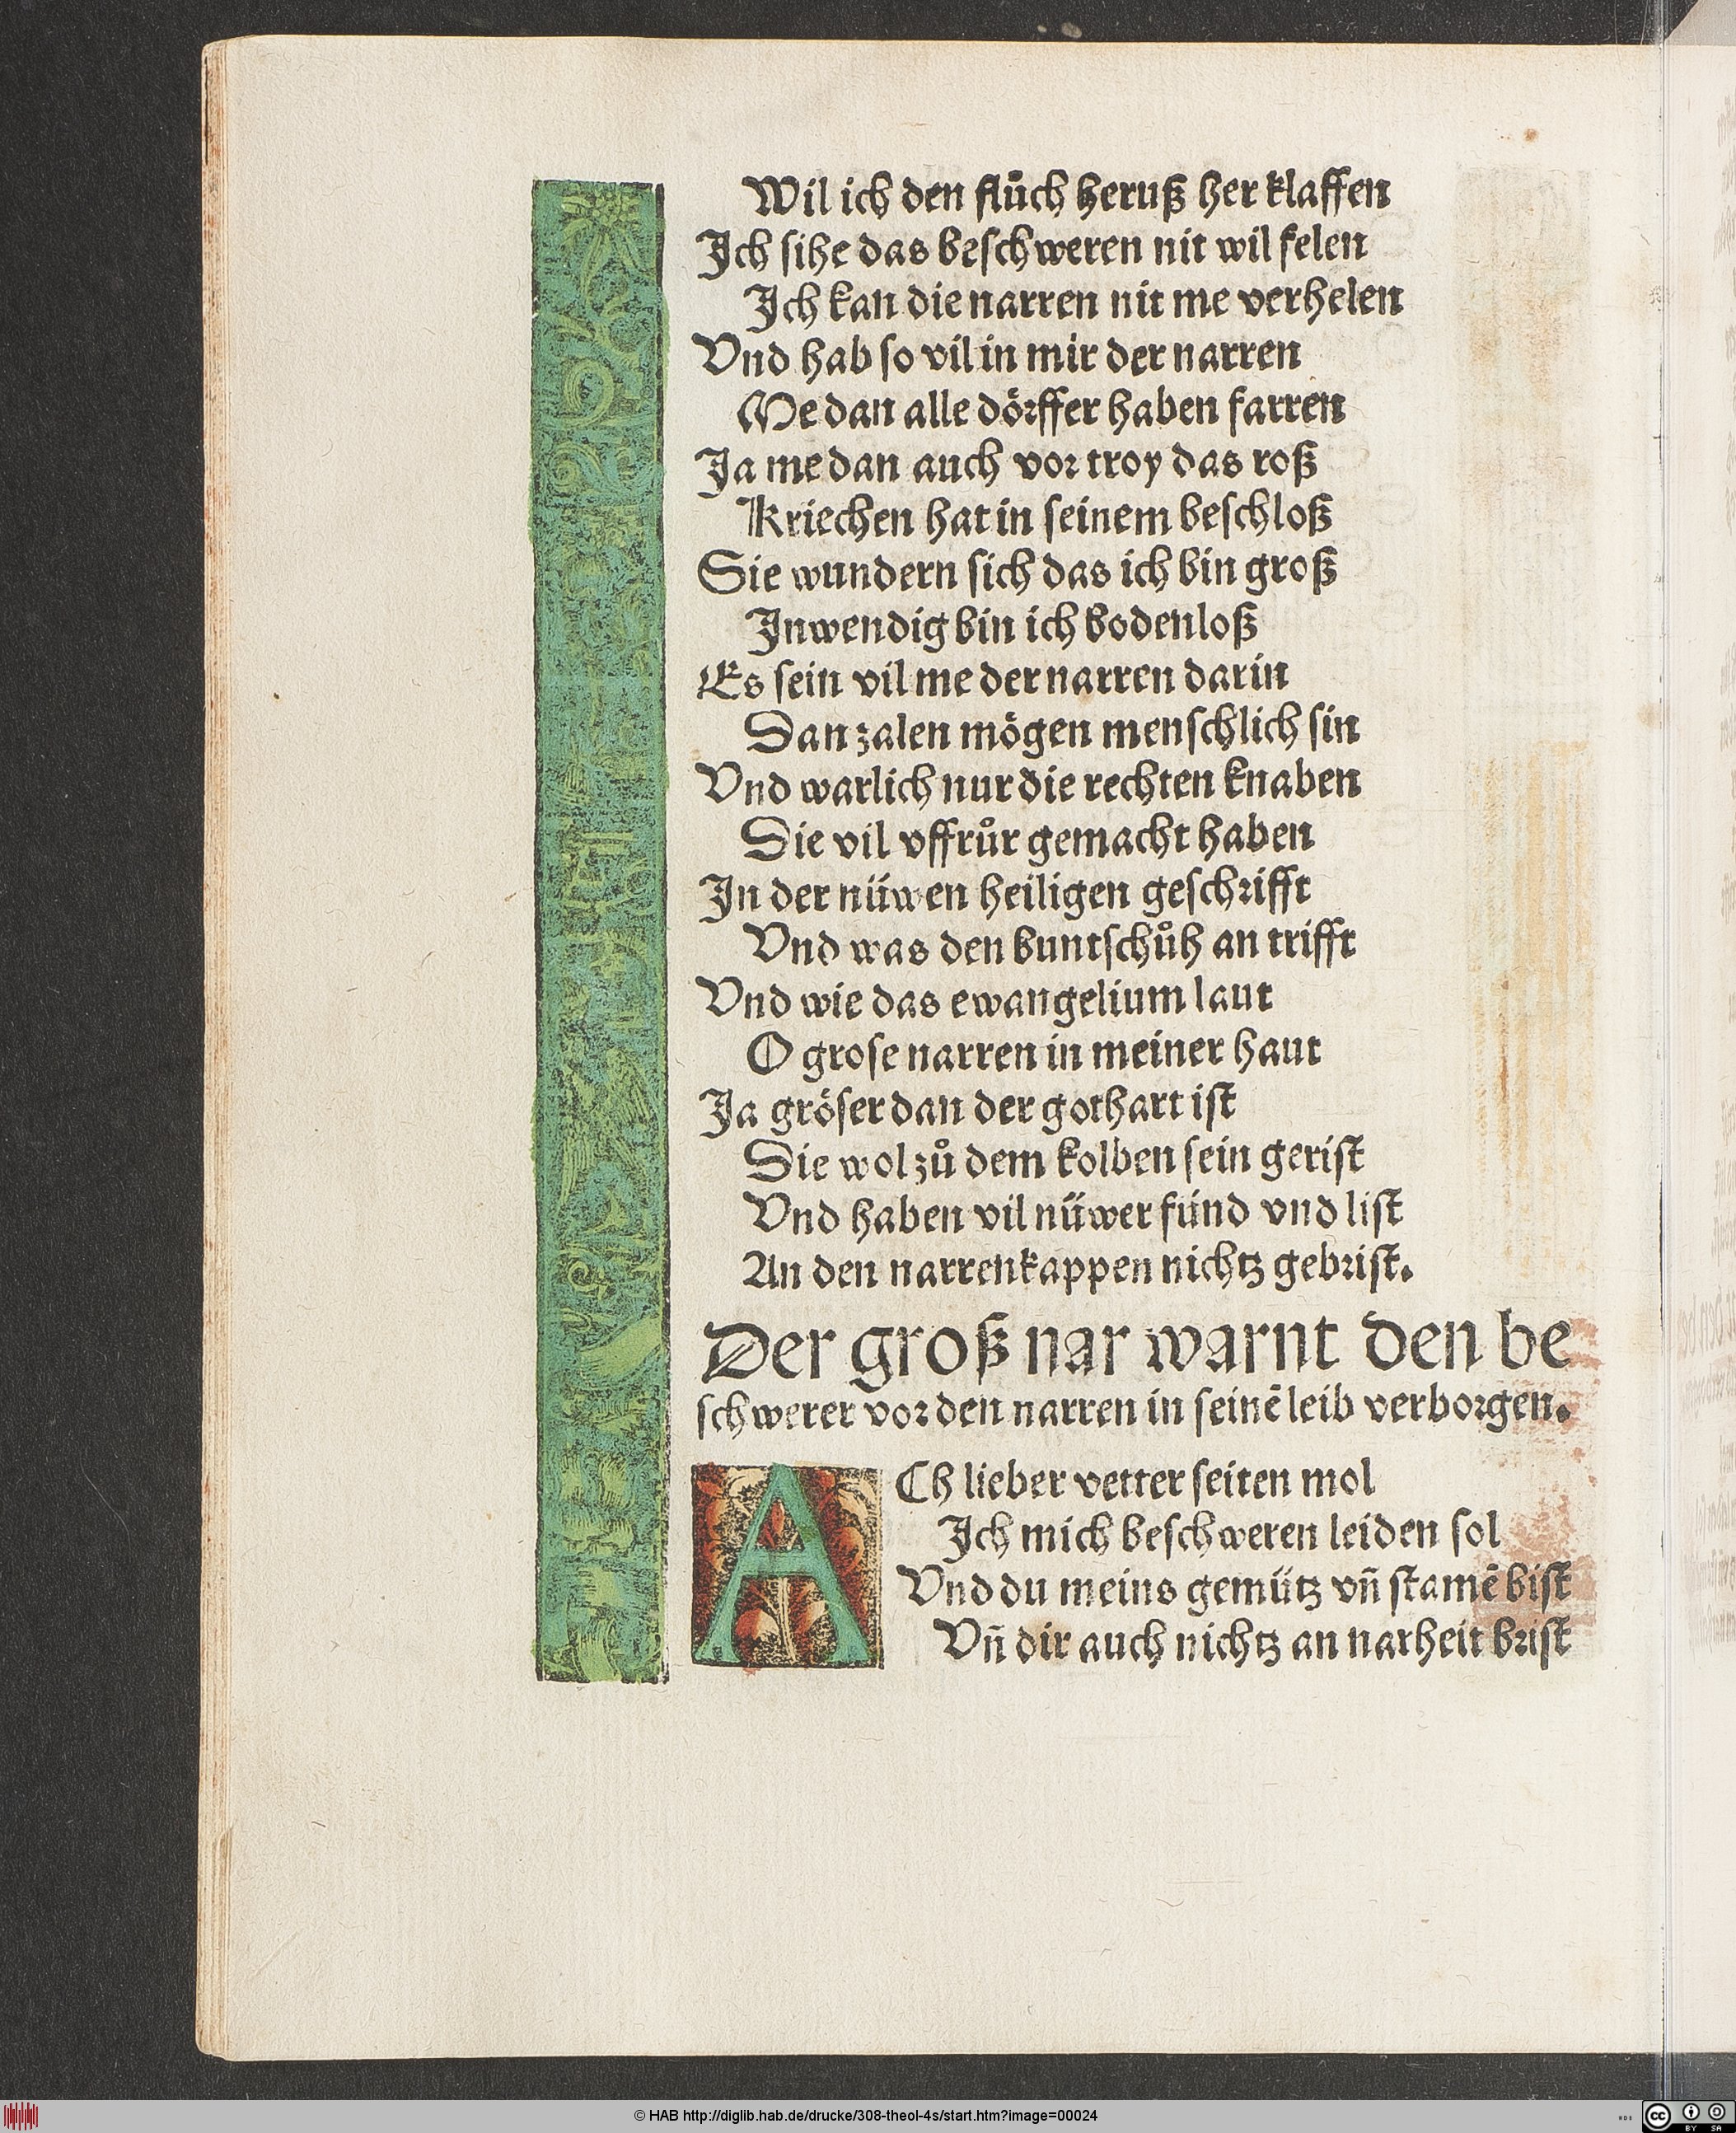 Wil ich den flůch heruß her klaffen
Ich sihe das beschweren nit wil felen
Ich kan die narren nit me verhelen
Vnd hab so vil in mir der narren
Me dan alle dörffer haben farren
Ja me dan auch vor troy das roß
Kriechen hat in seinem beschloß
Sie wundern sich das ich bin groß
Inwendig bin ich bodenloß
Es sein vil me der narren darin
Dan zalen mögen menschlich sin
Vnd warlich nur die rechten knaben
Die vil vffrůr gemacht haben
In der nüwen heiligen geschrifft
Vnd was den buntschůh an trifft
Vnd wie das ewangelium laut
O grose narren in meiner haut
Ja gröser dan der gothart ist
Die wol zů dem kolben sein gerist
Vnd haben vil nüwer fünd vnd list
An den narrenkappen nichtz gebrist.
Der groß nar warnt den be
schwerer vor den narren in seinẽ leib verborgen.
ACh lieber vetter seiten mol
Ich mich beschweren leiden sol
Vnd du meins gemütz vñ stamẽ bist
Vñ dir auch nichtz an narheit brist
© HAB http://diglib.hab.de/drucke/308-theol-4s/start.htm?image=00024
cc BY SA